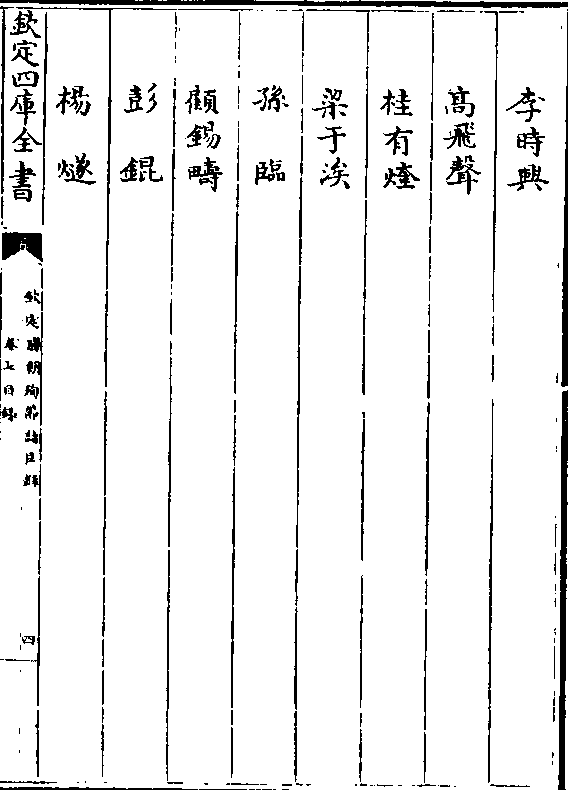 李時興
高飛聲
桂有煃
梁于涘
孫臨
顧錫疇
彭錕
楊燧
欽定四庫全書
欽定勝朝殉節諸臣錄
卷七目錄
四